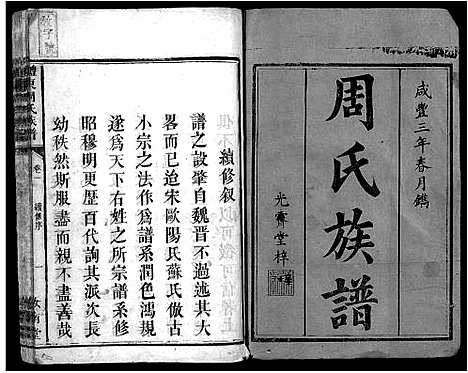 咸豐三年春月鐫
周氏族譜
光霽堂梓
續修叙
譜之設肇自魏晋不過述其大
畧而已迨宋歐陽氏蘇氏倣古
小宗之法作爲譜系潤色鴻規
遂爲天下右姓之所宗譜系修
昭穆明更歷百代詢其派次長
幼秩然斯服盡而親不盡善哉
東周氏族譜
卷一
續修序
一